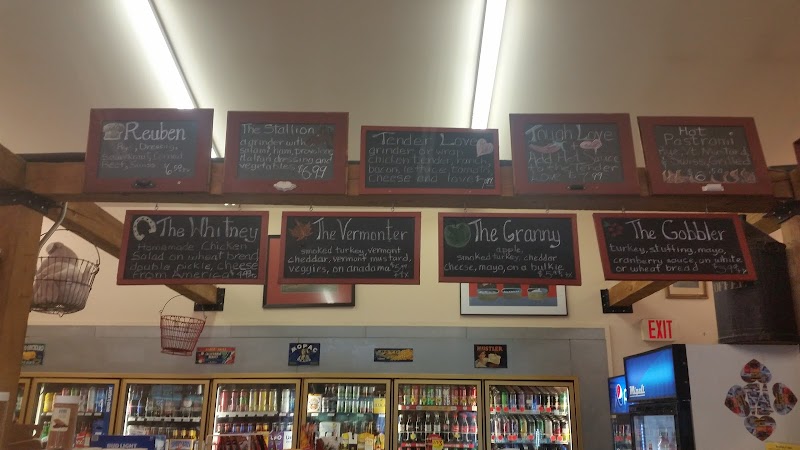 Reuben
Rye, Dressing,
Sauerkraut, Corned
Beef, Swiss
The Stallion
a grinder with
salami, ham, provolone,
Italian dressing and
vegetables $6.99
Tender Love
grinder or wrap
chicken tender, ranch
bacon, lettuce, tomato
cheese and love
Tough Love
Add Hot Sauce
to a Tender
Love
Hot
Pastrami
Rye w/ Mustard
& Swiss, Grilled
The Whitney
Homemade Chicken
Salad on wheat bread
double pickle, cheese
The Vermonter
smoked turkey, vermont
cheddar, vermont mustard,
veggies, on anadama
The Granny
apple,
smoked turkey, cheddar
cheese, mayo, on a bulkie
The Gobbler
turkey, stuffing, mayo,
cranberry sauce, on white
or wheat bread
EXIT
MOPAC
HUSTLER
pepsi
BUD LIGHT